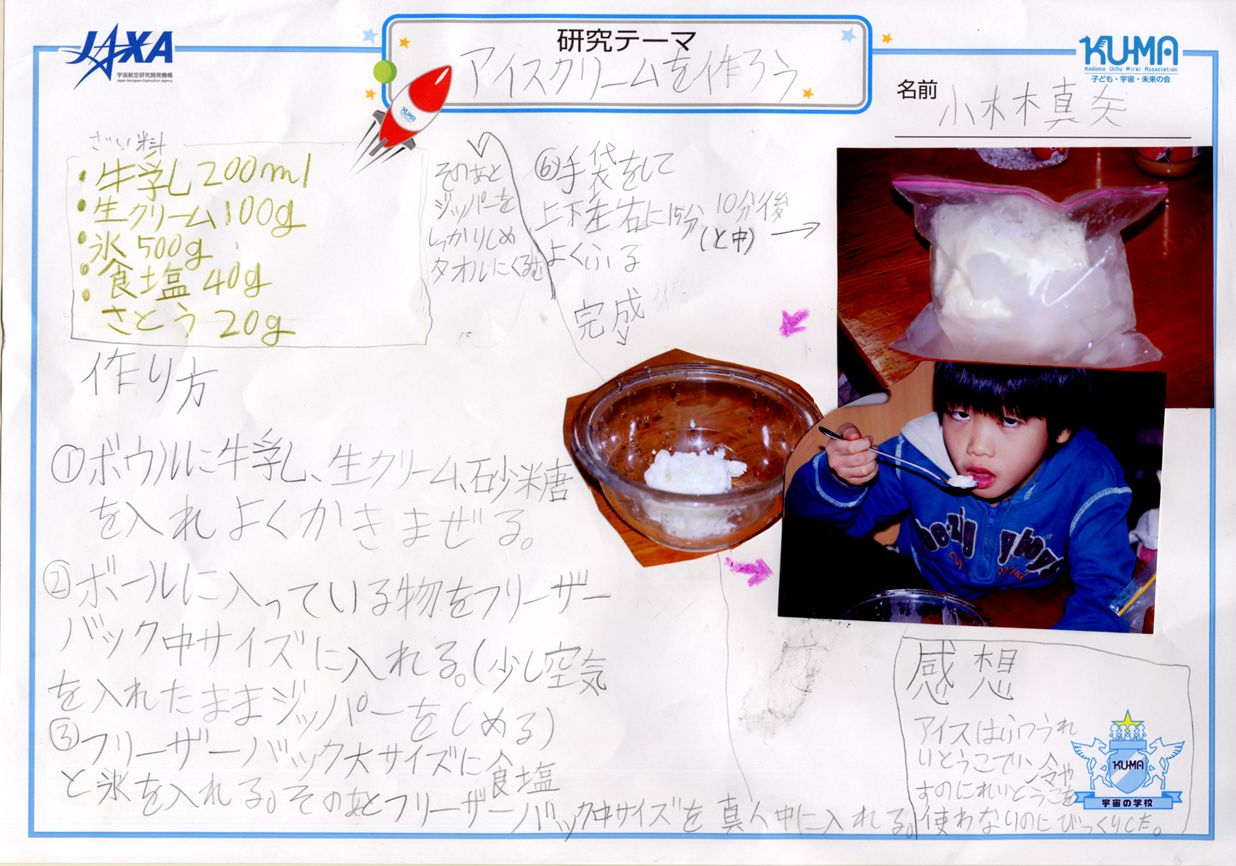 JAXA
宇宙航空研究開発機構
Japan Aerospace Exploration Agency
研究テーマ
アイスクリームを作ろう
KU-MA
Kodomo Uchu Mirai Association
子ども・宇宙・未来の会
名前 小林真矢
ざい料
・牛乳200ml
・生クリーム100g
・氷500g
・食塩40g
さとう20g
作り方
①ボウルに牛乳、生クリーム、砂糖
を入れよくかきまぜる。
②ボールに入っている物をフリーザー
バック中サイズに入れる。(少し空気
を入れたままジッパーをしめる)
③フリーザーバック大サイズに食塩
と氷を入れる。そのあとフリーザーバック中サイズを真ん中に入れる。
そのあと
ジッパーを
しっかりしめ
タオルにくるむ
⑥手袋をして
上下左右に15分
よくふる
10分後
(と中)
完成
感想
アイスはふつうれ
いとうこでひや
すのにれいとうこを
使わないのにびっくりした。
KU-MA
宇宙の学校